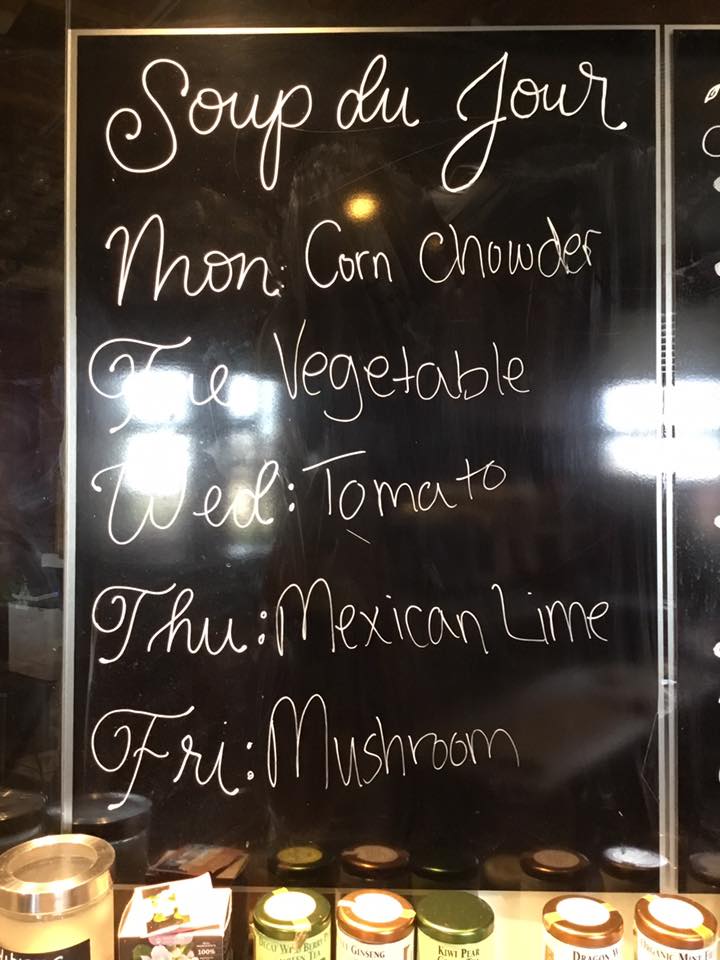 Soup du Jour
Mon: Corn Chowder
Tue: Vegetable
Wed: Tomato
Thu: Mexican Lime
Fri: Mushroom
100%
GINSENG
KIWI PEAR
DRAGON
ORGANIC MINT